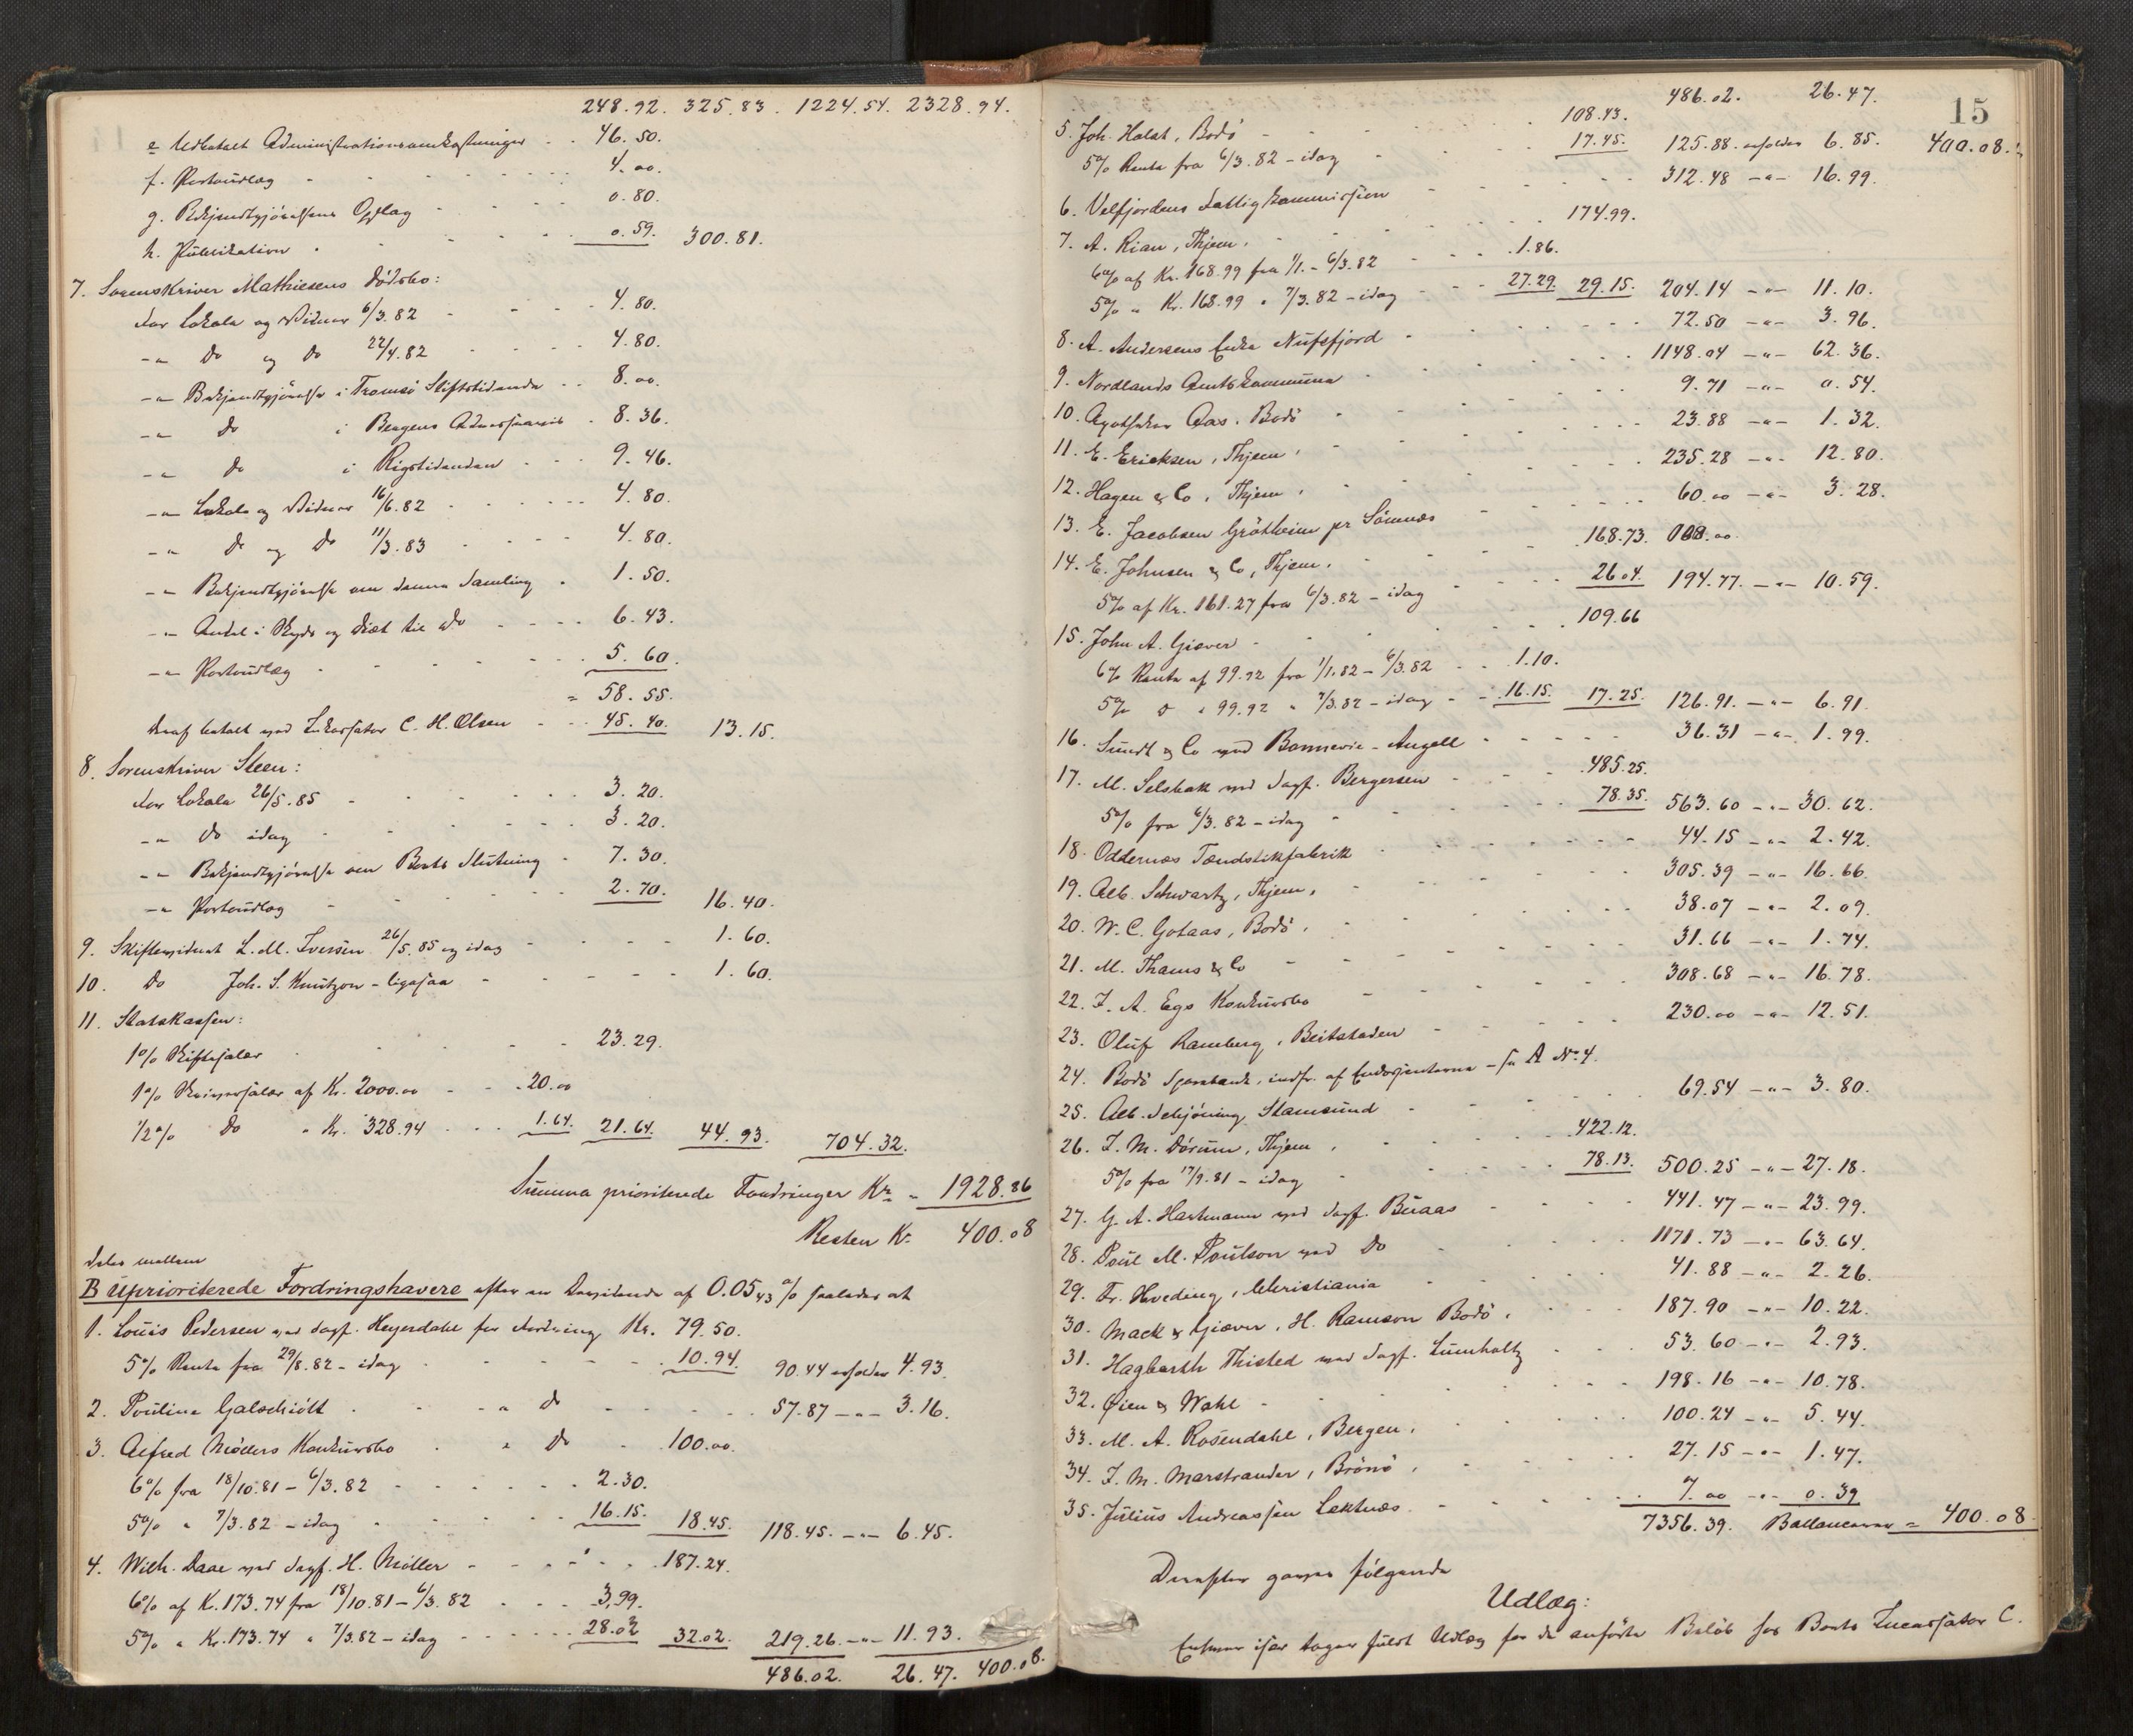 248.92. 325.83. 1224.54. 2328.94.
e Udbetalt Administrationsomkostninger 46.50.
f. Portoudlæg 4.00.
g. Bekjendtgjørelsens Opslag 0.80.
h. Publikation 0.59. 300.81.
7. Sorenskriver Mathiesens Dödsbo:
For Lokale og Vidner 6/3.82 4.80.
-"- Do og Do 22/4.82 4.80.
-"- Bekjendtgjörelse i Tromsö Stiftstidende 8.00.
-"- Do i Bergens Adressecontoir 8.36.
-"- Do i Rigstidenden 9.46.
-"- Lokale og Vidner 16/6.82 4.80.
-"- Do og Do 11/3.83 4.80.
-"- Bekjendtgjörelse om denne Samling 1.50.
-"- Andel i Skyds og Diæt til Do 6.43.
-"- Portoudlæg 5.60.
= 58.55.
Heraf betalt ved Inkassator C. H. Olsen 45.40. 13.15.
8. Sorenskriver Steen:
For Lokale 26/5.85 3.20.
-"- Do idag 3.20.
-"- Bekjendtgjörelse om Boets Slutning 7.30.
-"- Portoudlæg 2.70. 16.40.
9. Skiftevidnet L. M. Iversen 26/5.85 og idag 1.60.
10. Do Joh. S. Knutzon - ligesaa 1.60.
11. Statskassen:
1% Skiftesalær 23.29.
1% Skriversalær af Kr. 2000.00 20.00
1/2% Do " Kr. 328.94 1.64. 21.64. 44.93. 704.32.
Summa prioriterede Fordringer Kr. = 1928.86
Resten Kr. 400.08
deles mellem
B Uprioriterede Fordringshavere efter en Dividende af 0.05 43 % saaledes at
1. Louis Pedersen ved Sagf. Heyerdahl for Fordring Kr. 79.50.
5% Rente fra 29/8.82 - idag 10.94. 90.44 erholder 4.93.
2. Pouline Galschiött " Do 57.87 -"- 3.16.
3. Alfred Möllers Konkursbo " Do 100.00.
6% fra 18/10.81 - 6/3.82 2.30.
5% " 7/3.82 - idag 16.15. 18.45. 118.45. -"- 6.45.
4. Wilh. Daae ved Sagf. H. Möller 187.24.
6% af K. 173.74 fra 18/10.81 - 6/3.82 3.99.
5% " Kr. 173.74 " 7/3.82 - idag 28.03 32.02. 219.26. -"- 11.93.
486.02. 26.47. 400.08.
15
486.02. 26.47.
5. Joh. Holst, Bodö 108.43.
5% Rente fra 6/3.82 - idag 17.45. 125.88. erholder 6.85. 400.08.
6. Velfjordens Fattigkommission 312.48 -"- 16.99.
7. A. Rian, Thjem. 174.99.
6% af Kr. 168.99 fra 1/1. - 6/3.82 1.86.
5% " Kr. 168.99 " 7/3.82 - idag 27.29. 29.15. 204.14 -"- 11.10.
8. A. Andersens Enke Nufsfjord 72.50 -"- 3.96.
9. Nordlands Amtskommune 1148.04 -"- 62.36.
10. Apotheker Aas. Bodö 9.71 -"- 0.54.
11. E. Ericksen, Thjem. 23.88 -"- 1.32.
12. Hagen & Co, Thjem. 235.28 -"- 12.80.
13. E. Jacobsen Grötheim pr Sömnæs 60.00 -"- 3.28.
14. E. Johnsen & Co, Thjem. 168.73.
5% af Kr. 161.27 fra 6/3.82 - idag 26.04. 194.77. -"- 10.59.
15. John A. Giæver 109.66
6% Rente af 99.92 fra 1/1.82 - 6/3.82 1.10.
5% " " 99.92 " 7/3.82 - idag 16.15. 17.25. 126.91. -"- 6.91.
16. Sundt & Co ved Bonnevie-Angell 36.31 -"- 1.99.
17. M. Selsbak ved Sagf. Bergersen 485.25.
5% fra 6/3.82 - idag 78.35. 563.60 -"- 30.62.
18. Oddernæs Tændstikfabrik 44.15 -"- 2.42.
19. Alb. Schwartz, Thjem. 305.39 -"- 16.66.
20. W. C. Gotaas, Bodö. 38.07 -"- 2.09.
21. M. Thams & Co 31.66 -"- 1.74.
22. J. A. Egs Konkursbo 308.68 -"- 16.78.
23. Oluf Ramberg, Beitstaden 230.00 -"- 12.51.
24. Bodö Sparebank, indfr. af Endossenterne - se A No 4.
25. Alb. Schjöning, Stamsund 69.54 -"- 3.80.
26. J. M. Dörum, Thjem. 422.12.
5% fra 17/9.81 - idag 78.13. 500.25 -"- 27.18.
27. G. A. Hartmann ved Sagf. Buaas 441.47 -"- 23.99.
28. Poul M. Poulson ved Do 1171.73 -"- 63.64.
29. Fr. Hveding, Christiania 41.88 -"- 2.26.
30. Mack & Giæver, H. Ramson Bodö. 187.90 -"- 10.22.
31. Hagbarth Thisted ved Sagf. Lumholtz 53.60 -"- 2.93.
32. Øien & Wahl 198.16 -"- 10.78.
33. M. A. Rosendahl, Bergen. 100.24 -"- 5.44.
34. J. M. Marstrander, Brönö. 27.15 -"- 1.47.
35. Julius Andreassen Leknæs 7.00 -"- 0.39
7356.39. Ballancerer = 400.08.
Derefter gaves fölgende
Udlæg:
Enhver især tager fuldt Udlæg for de anförte Belöb hos Boets Incassator C.